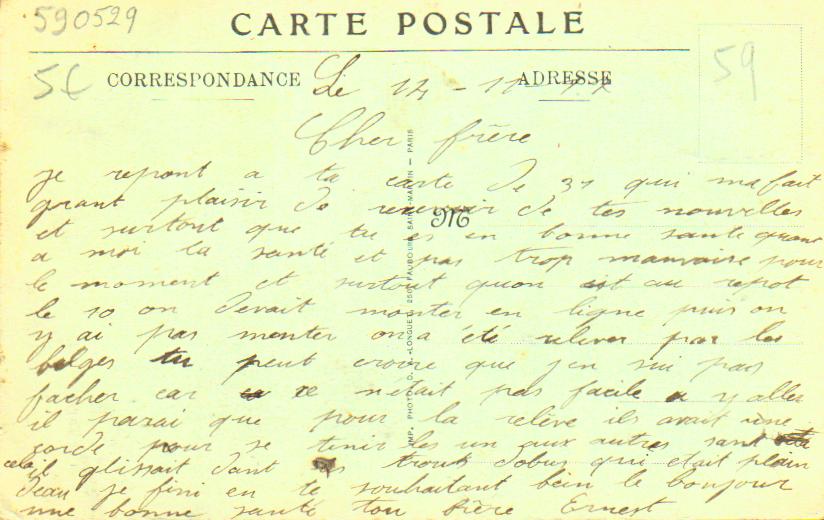 590529
CARTE POSTALE
59
5€ CORRESPONDANCE ADRESSE
Le 12 - 11 -
Cher frère
je repont a ta carte de 31 qui ma fait
grant plaisir de recevoir de tes nouvelles
et surtout que tu es en bonne sante quant
a moi la santé et pas trop mauvaise pour
le moment et surtout quon est au repot
le 10 on devait monter en ligne puis on
y ai pas monter on a été relever par les
belges tu peut croire que jen sui pas
facher car ce netait pas facile a y aller
il parai que pour la relève ils avait une
corde pour se tenir les un aux autres sant
cela il glissait dant les trout dobus qui etait plein
deau je fini en te souhaitant bein le bonjour
une bonne santé ton frère Ernest
IMP. PHOTO D. A. LONGUET, 250 FAUBOURG SAINT-MARTIN — PARIS
M